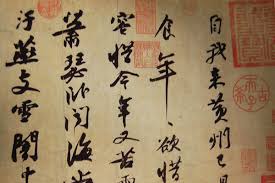 自我來黃州已
食年〻欲惜
容惜今年又苦雨
蕭瑟臥聞海棠
汙燕支雪闇中